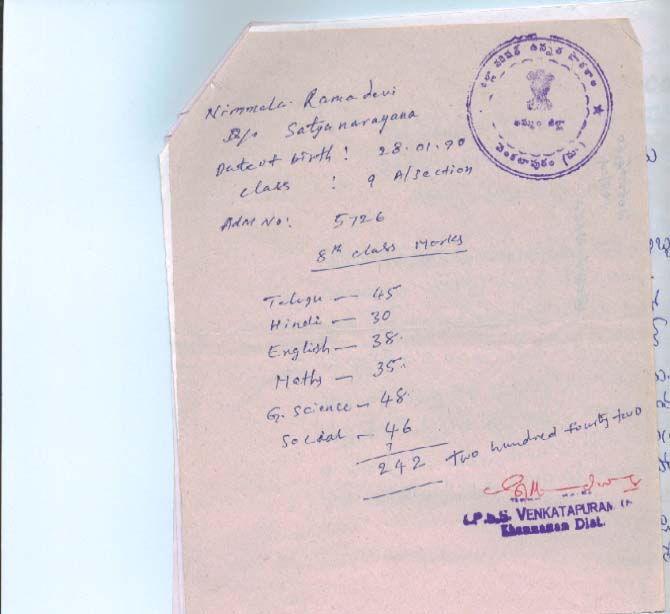 Nimmala. Rama devi
D/o Satyanarayana
Date of birth : 28.01.90
class : 9 A/section
ADM No: 5726
8th class Marks
Telugu — 45
Hindi — 30
English — 38.
Maths — 35.
G. Science — 48.
Social — 46
242 two hundred fourty two
జిల్లా పరిషత్ ఉన్నత పాఠశాల
ఖమ్మం జిల్లా
వెంకటాపురం (మం)
VENKATAPURAM
Khammam Dist.